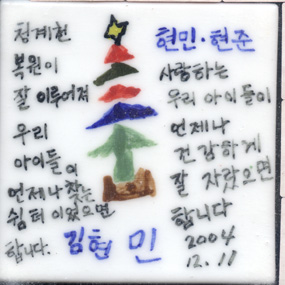 청계천
복원이
잘 이루어져
우리
아이들이
언제나 찾는
쉼터 이었으면
합니다.
김현민
현민·현준
사랑하는
우리 아이들이
언제나
건강하게
잘 자랐으면
합니다
2004
12.11